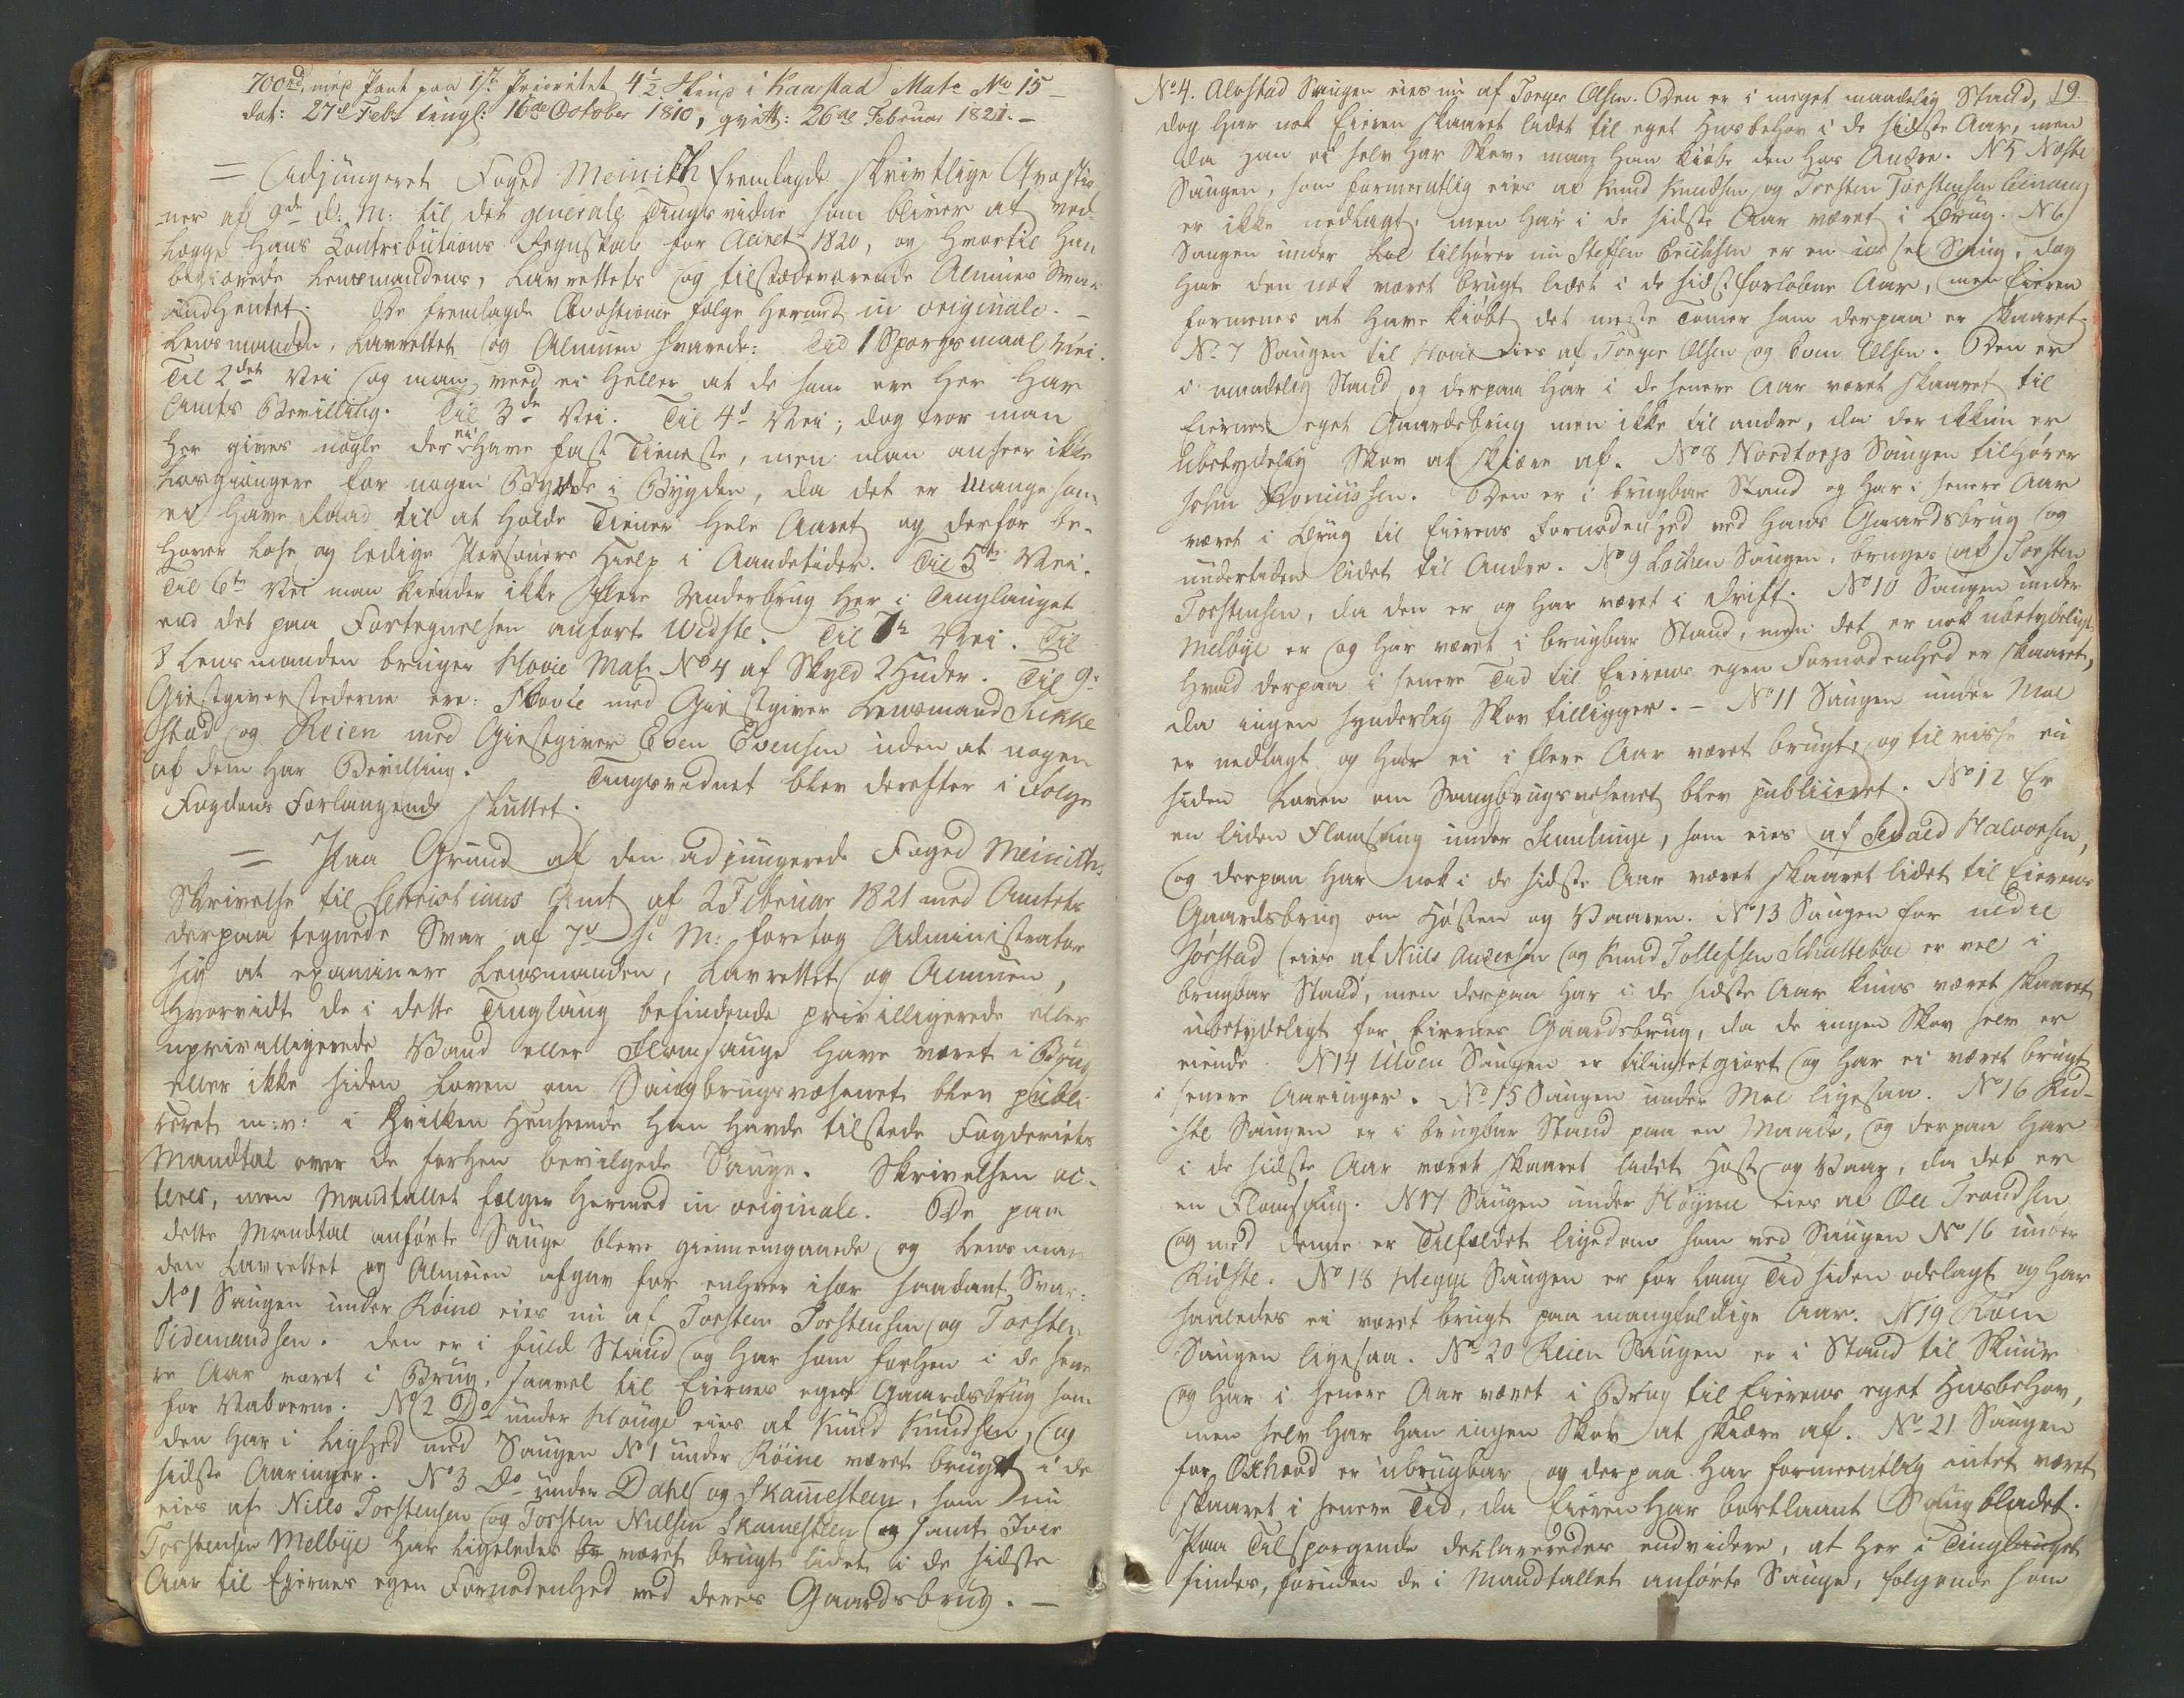 700rd, mod Pant paa 1ste Prioritet 4½ Skind i Kaarstad Mat: No 15 –
dat: 27de Febr tingl: 16de October 1810, qvitt: 26de Februar 1821. –
= Adjungeret Foged Meinich fremlagde skrivtlige Qvæstio-
ner af 9de d: M: til det generale Tingsvidne som bliver at ved-
lægge Hans Contributions Regnskab for Aaret 1820, og hvortil han
begiærede Lensmandens, Lavrettets og tilstædeværende Almues Svar
indhentet. De fremlagde Qvæstioner følge hermed in originale. –
Lensmanden, Lavrettet og Almuen svarede: Til 1 Spørgsmaal Nei.
Til 2det Nei og man veed ei heller at de som ere her har
Amts Bevilling. Til 3die Nei. Til 4de Nei; dog troer man
her gives nogle der ei have fast Tieneste, men man anseer ikke
Løsgiængere for nogen Byrde i Bygden, da det er mange som
ei have Raad til at holde Tiener hele Aaret og derfor be-
høver løse og ledige Personers Hielp i Aandetider. Til 5te Nei.
Til 6te Nei man kiender ikke flere Underbrug her i Tinglauget
end det paa Fortegnelsen anførte Widste. Til 7de Nei. Til
8 Lensmanden bruger Hovie Mat: No 4 af Skyld 2 Huder. Til 9:
Giestgiverstederne ere: Hovie med Giestgiver Lensmand Sukke
stad og Reien med Giestgiver Even Evensen uden at nogen
af dem har Bevilling. Tingsvidnet blev derefter i Følge
Fogdens Forlangende sluttet.
= Paa Grund af den adjungerede Foged Meinichs
Skrivelse til Christians Amt af 2 Februar 1821 med Amtets
derpaa tegnede Svar af 7de s: M: foretog Administrator
sig at examinere Lensmanden, Lavrettet og Almuen,
hvorvidt de i dette Tinglaug befindende privilligerede eller
uprivalligerede Vand eller Flomsauge have været i Brug
eller ikke siden Loven om Saugbrugsvæsenet blev publi-
ceret m: v: i hvilken Henseende han havde tilstede Fogderiets
Mandtal over de forhen bevilgede Sauge. Skrivelsen ac-
teres, men Mandtallet følger hermed in originale. De paa
dette Mandtal anførte Sauge bleve giennemgaaede og Lensman
den Lavrettet og Almuen afgav for enhver især saadant Svar:
No 1 Saugen under Røine eies nu af Torsten Torstensen og Torsten
Tidemandsen. Den er i fuld Stand og har som forhen i de sene
re Aar været i Brug, saavel til Eiernes eget Gaardsbrug som
for Naboerne. No 2 Do under Houge eies af Knud Knudsen, og
den har i Lighed med Saugen No 1 under Røine været brugt i de
sidste Aaringer. No 3 Do under Dahl og Skamestein, som nu
eies af Niels Torstensen og Torsten Nielsen Skamesteen og samt Iver
Torstensen Melbye har ligeledes været brugt lidet i de sidste
Aar til Eiernes egen Fornødenhed ved deres Gaardsbrug. –
19.
No 4. Alvstad Saugen eies nu af Torger Olsen. Den er i meget maadelig Stand,
dog har nok Eieren skaaret lidet til eget Husbehov i de sidste Aar, men
da han ei selv har Skov, maae han kiøbe den hos Andre. N 5 Næste
Saugen, som formeentlig eies af Knud Knudsen og Torsten Torstensen Leinang
er ikke nedlagt, men har i de sidste Aar været i Brug. N 6
Saugen under Loe tilhører nu Steffen Erichsen er en ussel Saug, dog
har den nok været brugt lidet i de sidst forløbne Aar, men Eieren
formenes at have kiøbt det meste Tømer som derpaa er skaaret.
No 7 Saugen til Hovie eies af Torger Olsen og Tom Olsen. Den er
i maadelig Stand og derpaa har i de senere Aar været skaaret til
Eiernes eget Gaardsbrug men ikke til andre, da der ikkun er
ubetydelig Skov at skiære af. No 8 Nordtorps Saugen tilhører
John Poniussen. Den er i brugbar Stand og har i senere Aar
været i Brug til Eierens Fornødenhed ved Hans Gaardsbrug og
undertiden lidet til Andre. No 9 Lochen Saugen, bruges af Torsten
Torstensen, da den er og har været i Drift. No 10 Saugen under
Melbye er og har været i brugbar Stand, men det er nok ubetydeligt,
hvad derpaa i senere Tid til Eierens egen Fornødenhed er skaaret,
da ingen synderlig Skov tilligger. – No 11 Saugen under Moe
er nedlagt og har ei i flere Aar været brugt, og til visse ei
siden Loven om Saugbrugsvæsenet blev publiceret. No 12 Er
en liden Flomsaug under Semeliinge, som eies af Sevald Halvorsen,
og derpaa har nok i de sidste Aar været skaaret lidet til Eierens
Gaardsbrug om Høsten og Vaaren. No 13 Saugen for nedre
Jørstad eies af Niels Andersen og Knud Tollefsen Schatteboe er vel i
brugbar Stand, men derpaa har i de sidste Aar kuns været skaaret
ubetydeligt for Eiernes Gaardsbrug, da de ingen Skov selv er
eiende. N 14 Ulven Saugen er tilintetgiort og har ei været brugt
i senere Aaringer. No 15 Saugen under Moe ligesaa. No 16 Rid-
ste Saugen er i brugbar Stand paa en Maade, og derpaa har
i de sidste Aar været skaaret lidet Høst og Vaar, da det er
en Flomsaug. N 17 Saugen under Høyme eies af Ole Trondsen
og med denne er Tilfældet ligedan som ved Saugen No 16 under
Ridste. No 18 Hegge Saugen er for lang Tid siden ødelagt og har
saaledes ei været brugt paa mangfoldige Aar. N 19 Roen
Saugen ligesaa. No 20 Reien Saugen er i Stand til Skuur
og har i senere Aar været i Brug til Eierens eget Husbehov,
men selv har han ingen Skov at skiære af. No 21 Saugen
for Oxhovd er ubrugbar og derpaa har formeentlig intet været
skaaret i senere Tid, da Eieren har bortlaant Saugbladet.
Paa Tilspørgende declareredes endvidere, at her i Tinglauget
findes, foruden de i Mandtallet anførte Sauge, følgende som